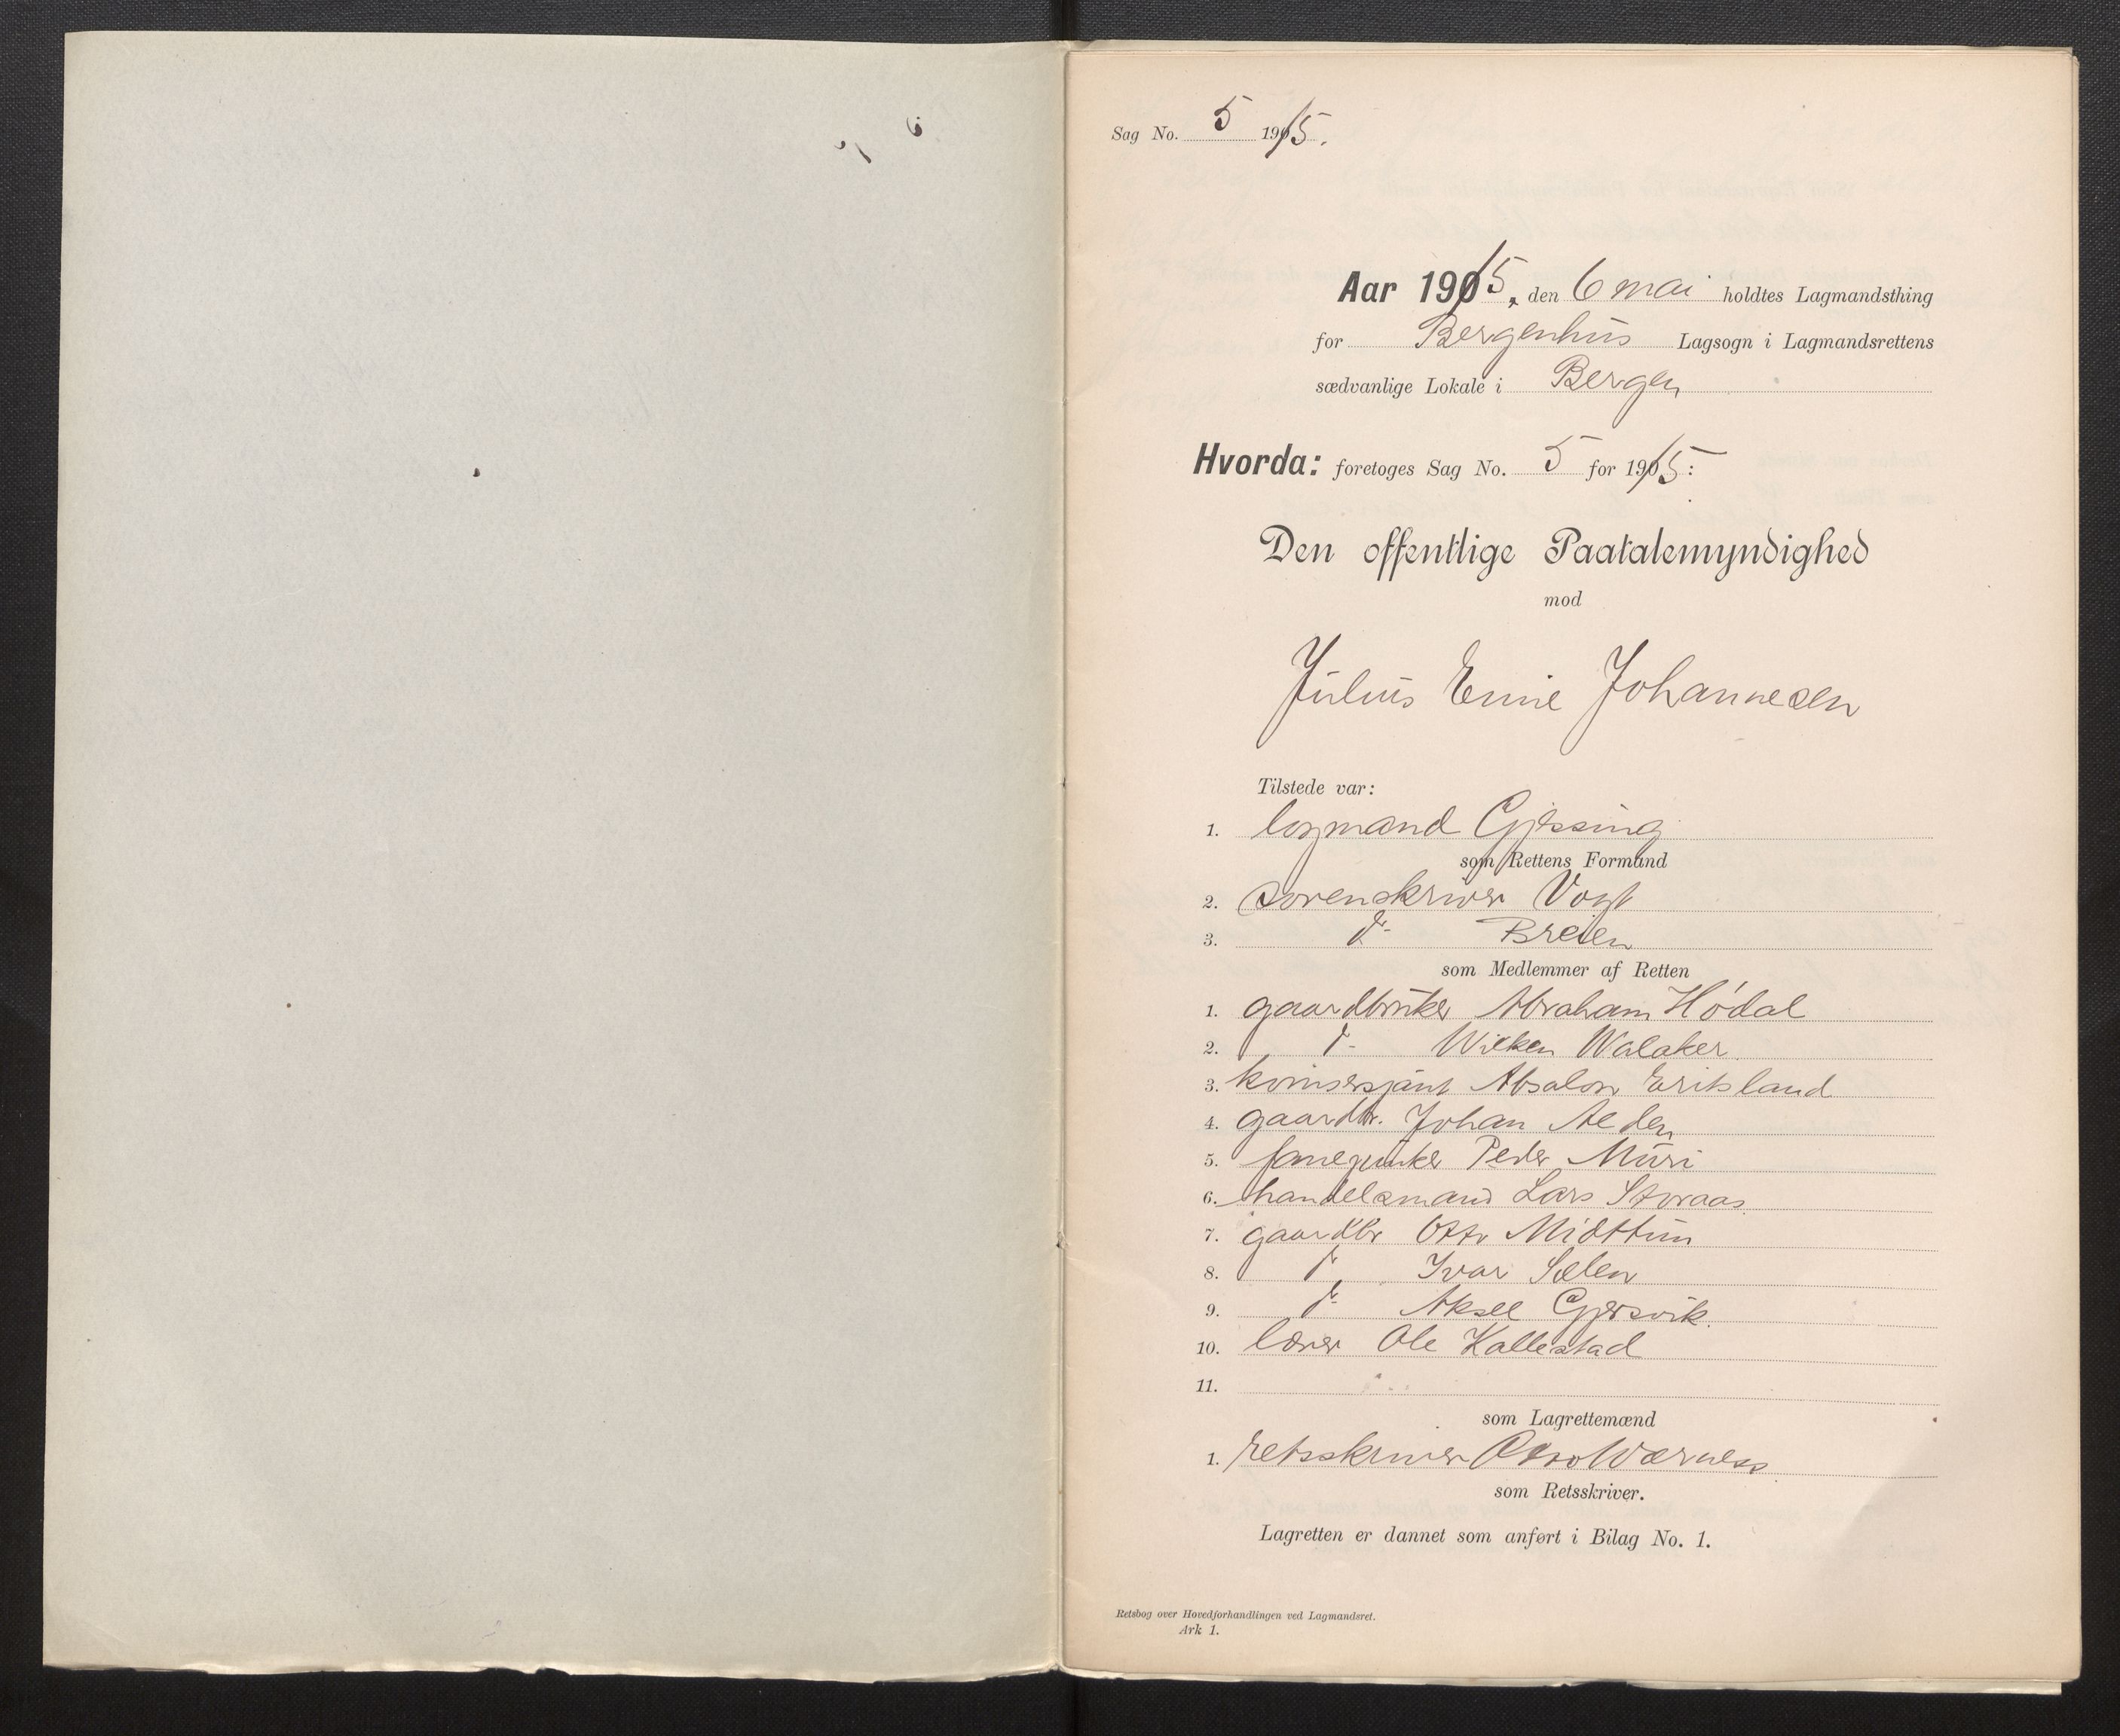 Sag No. 5 1915.
Aar 1915, den 6 mai holdtes Lagmandsthing
for Bergenhus Lagsogn i Lagmandsrettens
sædvanlige Lokale i Bergen
Hvorda: foretoges Sag No. 5 for 1915:
Den offentlige Paatalemyndighed
mod
Julius Emil Johannesen
Tilstede var:
1. lagmand Gjessing
som Rettens Formand
2. sorenskriver Vogt
3. do Breien
som Medlemmer af Retten
1. gaardbruker Abraham Hødal
2. do Wilken Walaker
3. Absalon
4. gaardbr. Johan Alden
5. Peder Muri
6. handelsmand Lars Storaas
7. gaardbr Otto Midttun
8. do Ivar Sælen
9. do Aksel Gjersvik.
10. lærer Ole Kallestad
11.
som Lagrettemænd
1. retsskriver Otto Wærness
som Retsskriver.
Lagretten er dannet som anført i Bilag No. 1.
Retsbog over Hovedforhandlingen ved Lagmandsret.
Ark 1.